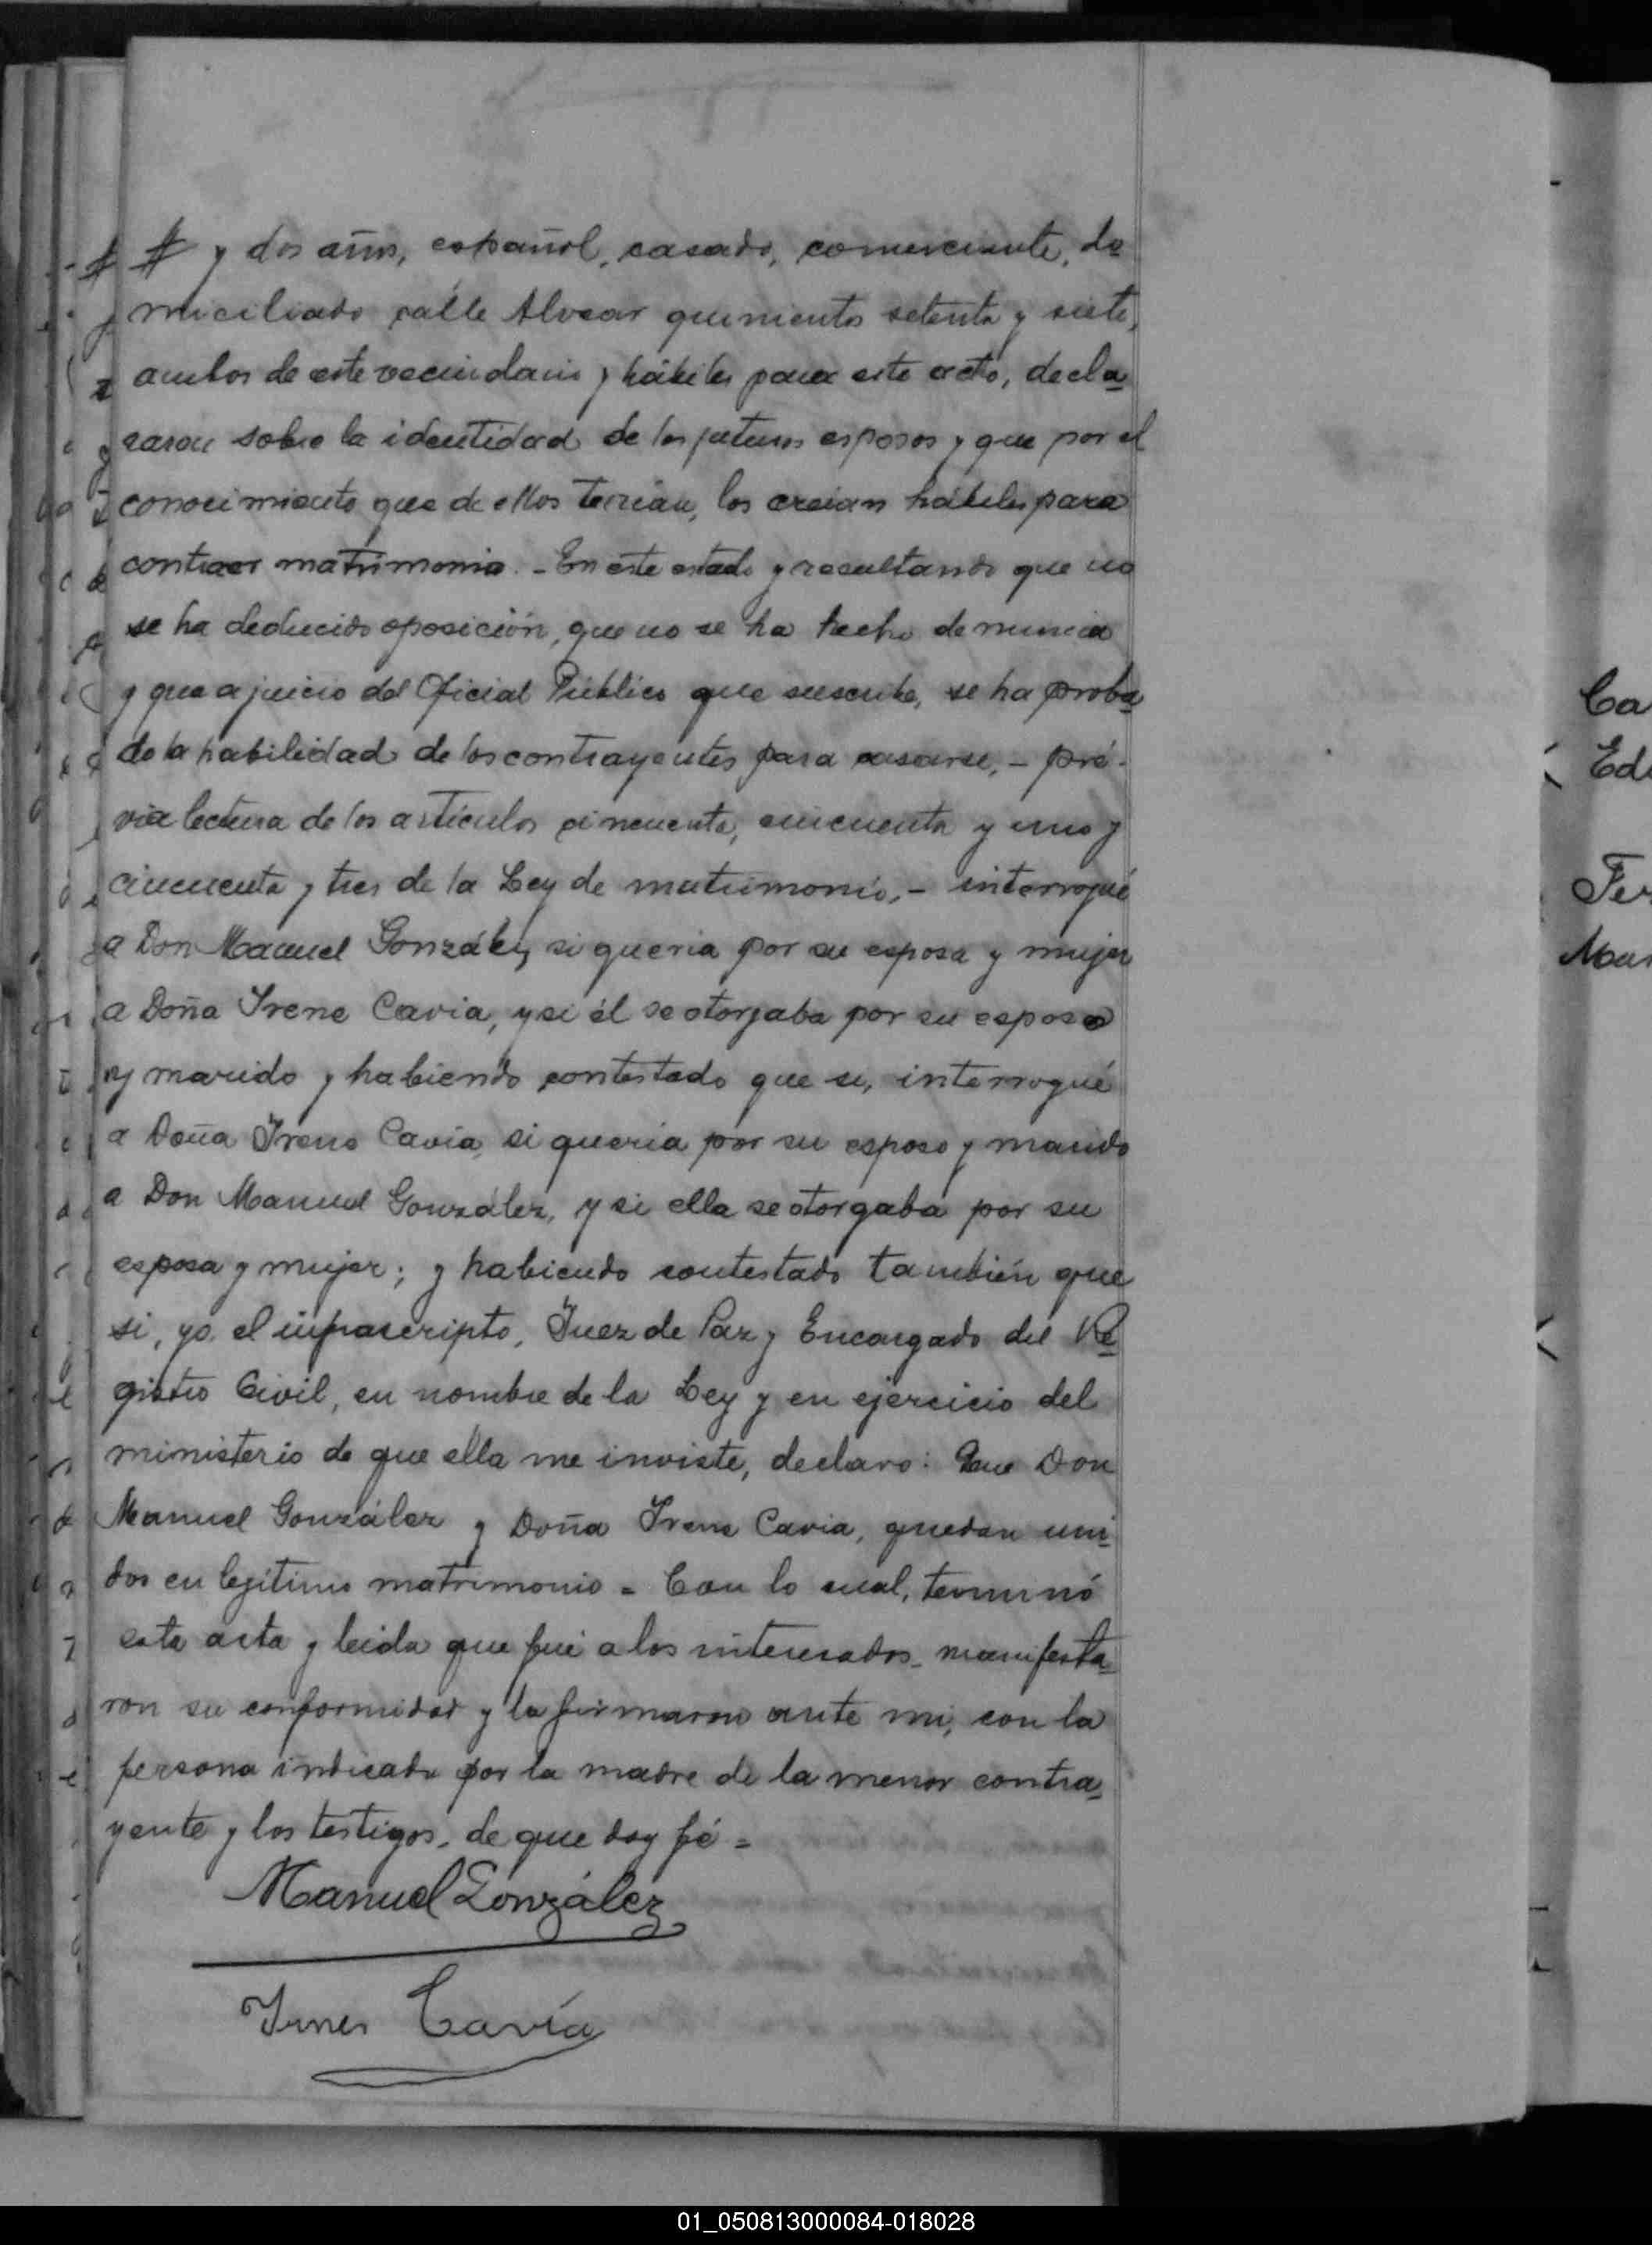 y dos años, español, casado, comerciante, do
miciliado calle Alvear quinientos setenta y siete,
ambos de este vecindario y hábiles para este acto, decla
raron sobre la identidad de los futuros esposos y que por el
conocimiento que de ellos tenían, los creían hábiles para
contraer matrimonio. - En este estado y resultando que no
se ha deducido oposición, que no se ha hecho denuncia
y que a juicio del Oficial Público que suscribe, se ha proba
do la habilidad de los contrayentes para casarse, - pré-
via lectura de los artículos cincuenta, cincuenta y uno y
cincuenta y tres de la Ley de matrimonio, - interrogué
a Don Manuel González, si queria por su esposa y mujer
a Doña Irene Cavia, y si él se otorgaba por su esposo
y marido y habiendo contestado que si, interrogué
a Doña Irene Cavia, si queria por su esposo y marido
a Don Manuel González, y si ella se otorgaba por su
esposa y mujer; y habiendo contestado también que
si, yo, el infrascripto, Juez de Paz y Encargado del Re
gistro Civil, en nombre de la Ley y en ejercicio del
ministerio de que ella me inviste, declaro: Que Don
Manuel González y Doña Irene Cavia, quedan uni
dos en legítimo matrimonio = Con lo cual, terminó
esta acta y leida que fué a los interesados, manifesta
ron su conformidad y la firmaron ante mi, con la
persona indicada por la madre de la menor contra
yente y los testigos, de que doy fé =
Manuel González
Cavía
Ca
Ed
Fer
Man
01_050813000084-018028